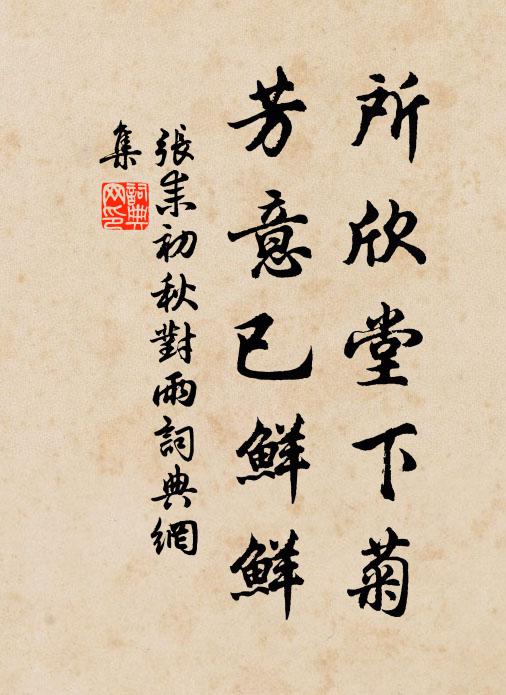 所欣堂下菊
芳意已鮮鮮
張耒初秋對雨詞典網
集
詞典
网印